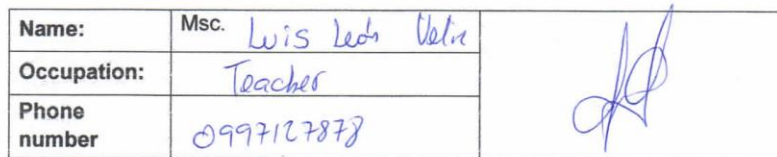 Name: Msc. Luis León
Occupation: Teacher
Phone
number 0997127878